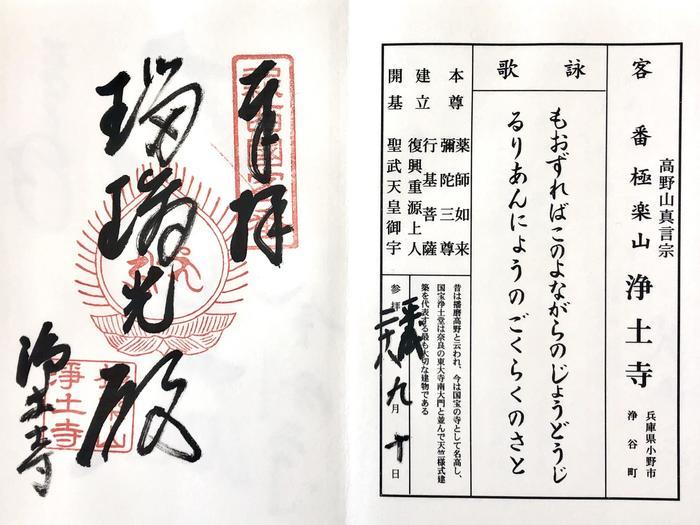 客番 極楽山 浄土寺
高野山真言宗
兵庫県小野市
浄谷町
詠歌
もおずればこのよながらのじょうどうじ
るりあんにょうのごくらくのさと
本尊 薬師如来
彌陀三尊
建立 行基菩薩
復興重源上人
開基 聖武天皇御宇
昔は播磨高野と云われ、今は国宝の寺として名高し、
国宝浄土堂は奈良の東大寺南大門と並んで天竺様式建
築を代表する最も大切な建物である
参拝 九月十日
奉拝
瑠璃光殿
浄土寺
浄土寺